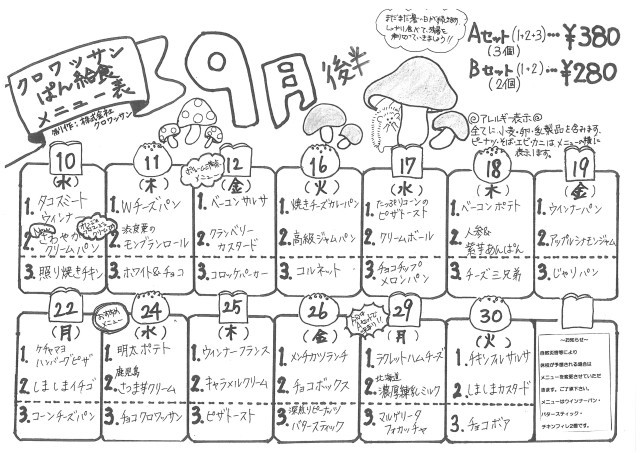 クロワッサン
ぱん給食
メニュー表
制作:株式会社
クロワッサン
9月 後半
Aセット(1・2・3)…¥380
(3個)
Bセット(1・2)…¥280
(2個)
@アレルギー表示@
全てに、小麦・卵・乳製品を含みます。
ピーナッツ・そば・エビ・カニはメニューの横に
表示します。
10
(水)
1. タコスミート
ウィンナー
2. さわやか
クリームパン
3. 照り焼きチキン
11
(木)
1. Wチーズパン
2. 滋賀県の
モンブランロール
3. ホワイト&チョコ
12
(金)
1. ベーコンサルサ
2. クランベリー
カスタード
3. コロッケバーガー
16
(火)
1. 焼きチーズカレーパン
2. 高級ジャムパン
3. コルネット
17
(水)
1. たっぷりコーンの
ピザトースト
2. クリームボール
3. チョコチップ
メロンパン
18
(木)
1. ベーコンポテト
2. 人参&
紫芋あんぱん
3. チーズ三兄弟
19
(金)
1. ウインナーパン
2. アップルシナモンジャム
3. じゃりパン
22
(月)
1. ケチャマヨ
ハンバーグピザ
2. しましまイチゴ
3. コーンチーズパン
おすすめ
メニュー
24
(水)
1. 明太ポテト
2. 鹿児島
さつま芋クリーム
3. チョコクロワッサン
25
(木)
1. ウインナーフランス
2. キャラメルクリーム
3. ピザトースト
26
(金)
1. メンチカツランチ
2. チョコボックス
3. 深煎りピーナッツ
バタースティック
29
(月)
1. ラクレットハムチーズ
2. 北海道
濃厚練乳ミルク
3. マルゲリータ
フォカッチャ
30
(火)
1. チキンフィレサルサ
2. しましまカスタード
3. チョコボア
~お知らせ~
自然災害等により
休校が予想される場合は
メニューを変更させていただ
きます。ご了承下さい。
メニューはウインナーパン・
バタースティック・
チキンフィレ2個です。